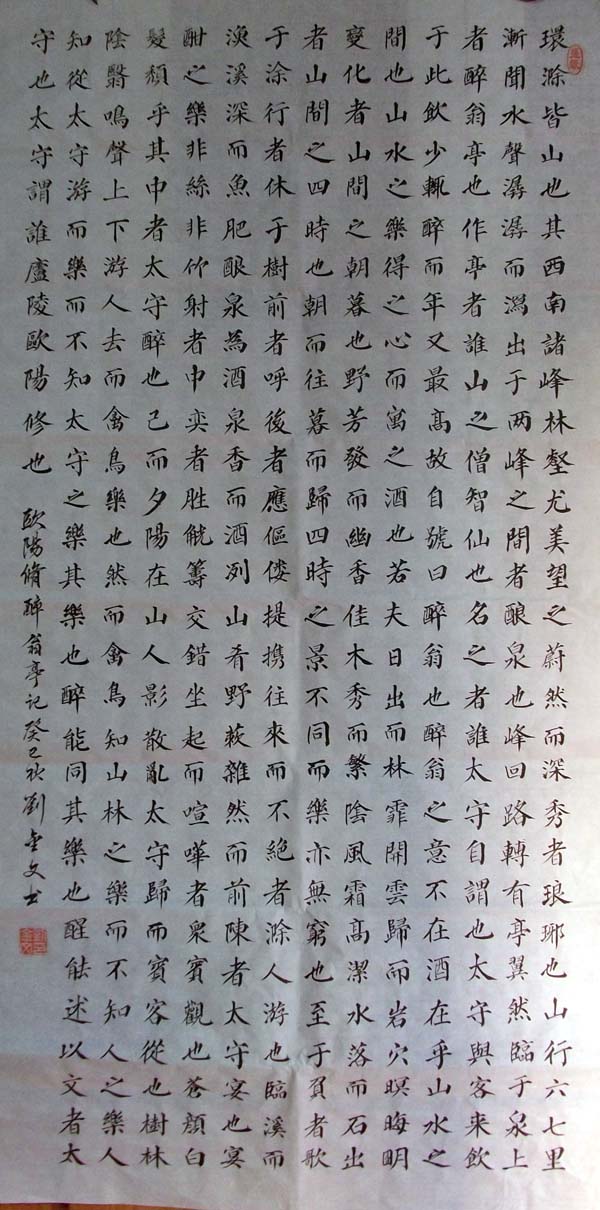 環滁皆山也其西南諸峰林壑尤美望之蔚然而深秀者琅琊也山行六七里
漸聞水聲潺潺而瀉出于两峰之間者酿泉也峰回路轉有亭翼然臨于泉上
者醉翁亭也作亭者誰山之僧智仙也名之者誰太守自謂也太守與客来飲
于此飲少輒醉而年又最高故自號曰醉翁也醉翁之意不在酒在乎山水之
間也山水之樂得之心而寓之酒也若夫日出而林霏開雲歸而岩穴暝晦明
變化者山間之朝暮也野芳發而幽香佳木秀而繁陰風霜高潔水落而石出
者山間之四時也朝而往暮而歸四時之景不同而樂亦無窮也至于負者歌
于涂行者休于樹前者呼後者應傴僂提携往來而不絕者滁人游也臨溪而
漁溪深而魚肥酿泉為酒泉香而酒洌山肴野蔌雜然而前陳者太守宴也宴
酣之樂非絲非竹射者中奕者胜觥籌交錯坐起而喧嘩者衆賓觀也蒼顏白
髮頹乎其中者太守醉也已而夕陽在山人影散亂太守歸而賓客從也樹林
陰翳鳴聲上下游人去而禽鳥樂也然而禽鳥知山林之樂而不知人之樂人
知從太守游而樂而不知太守之樂其樂也醉能同其樂也醒能述以文者太
守也太守謂誰廬陵歐陽修也
歐陽脩醉翁亭記癸巳秋劉金文书